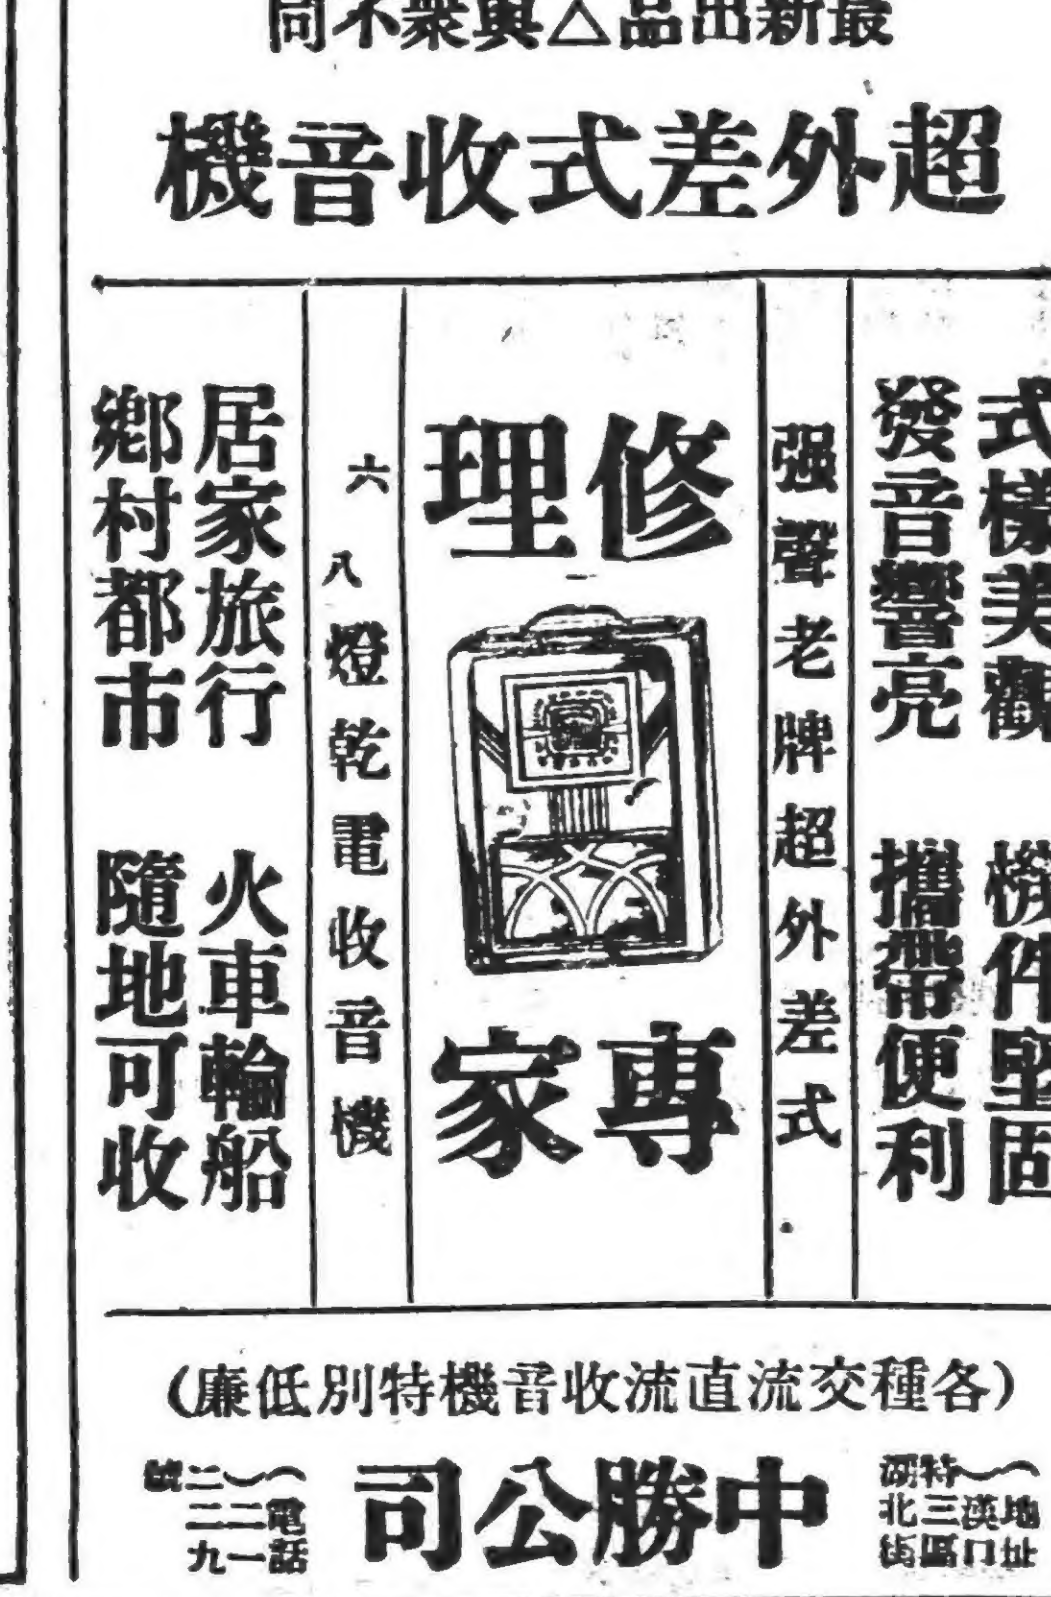 最新出品△與衆不同
超外差式收音機
式樣美觀 機件堅固
發音響亮 攜帶便利
强聲老牌超外差式
修理
專家
六八燈乾電收音機
居家旅行 火車輪船
鄉村都市 隨地可收
(各種交流直流收音機特別低廉)
(地址)漢口特三區湖北街
中勝公司
(電話)二一二二九號